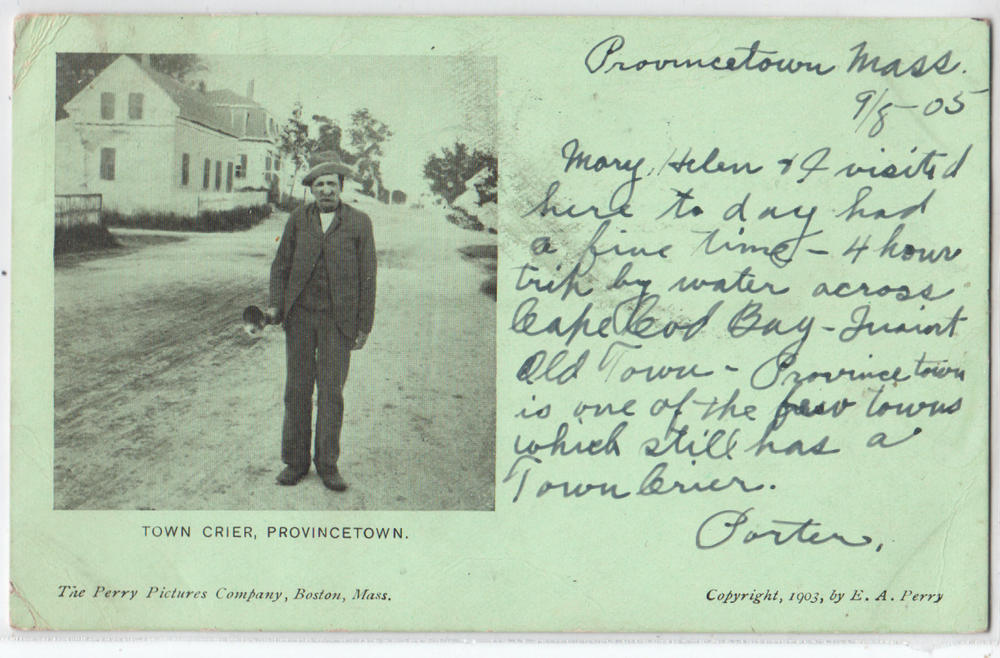 Provincetown Mass.
9/8-05
Mary, Helen & I visited
here to day had
a fine time - 4 hour
trip by water across
Cape Cod Bay - Quaint
Old Town - Provincetown
is one of the few towns
which still has a
Town Crier.
Porter,
TOWN CRIER, PROVINCETOWN.
The Perry Pictures Company, Boston, Mass.
Copyright, 1903, by E. A. Perry